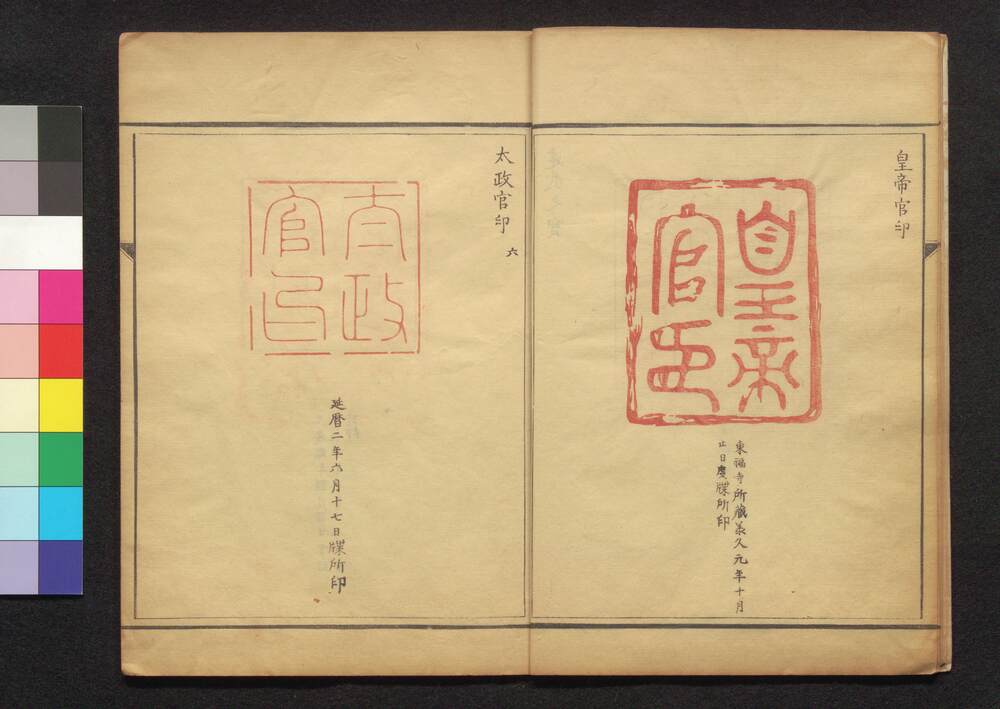 皇帝官印
皇帝
官印
東福寺所蔵承久元年十月
廿日度牒所印
太政官印
六
太政
官印
延暦二年六月十七日牒所印